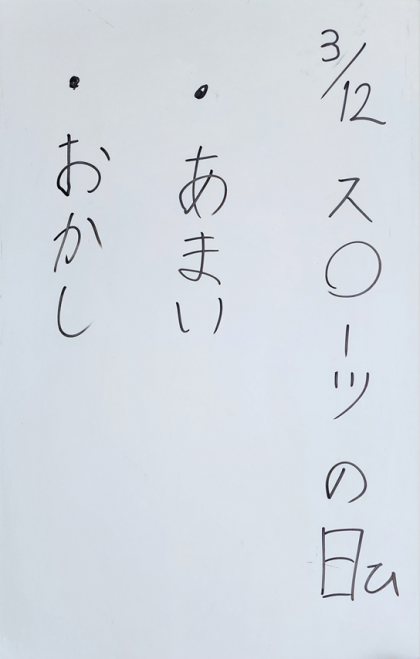 3/12 ス〇ーツの日ひ
・あまい
・おかし